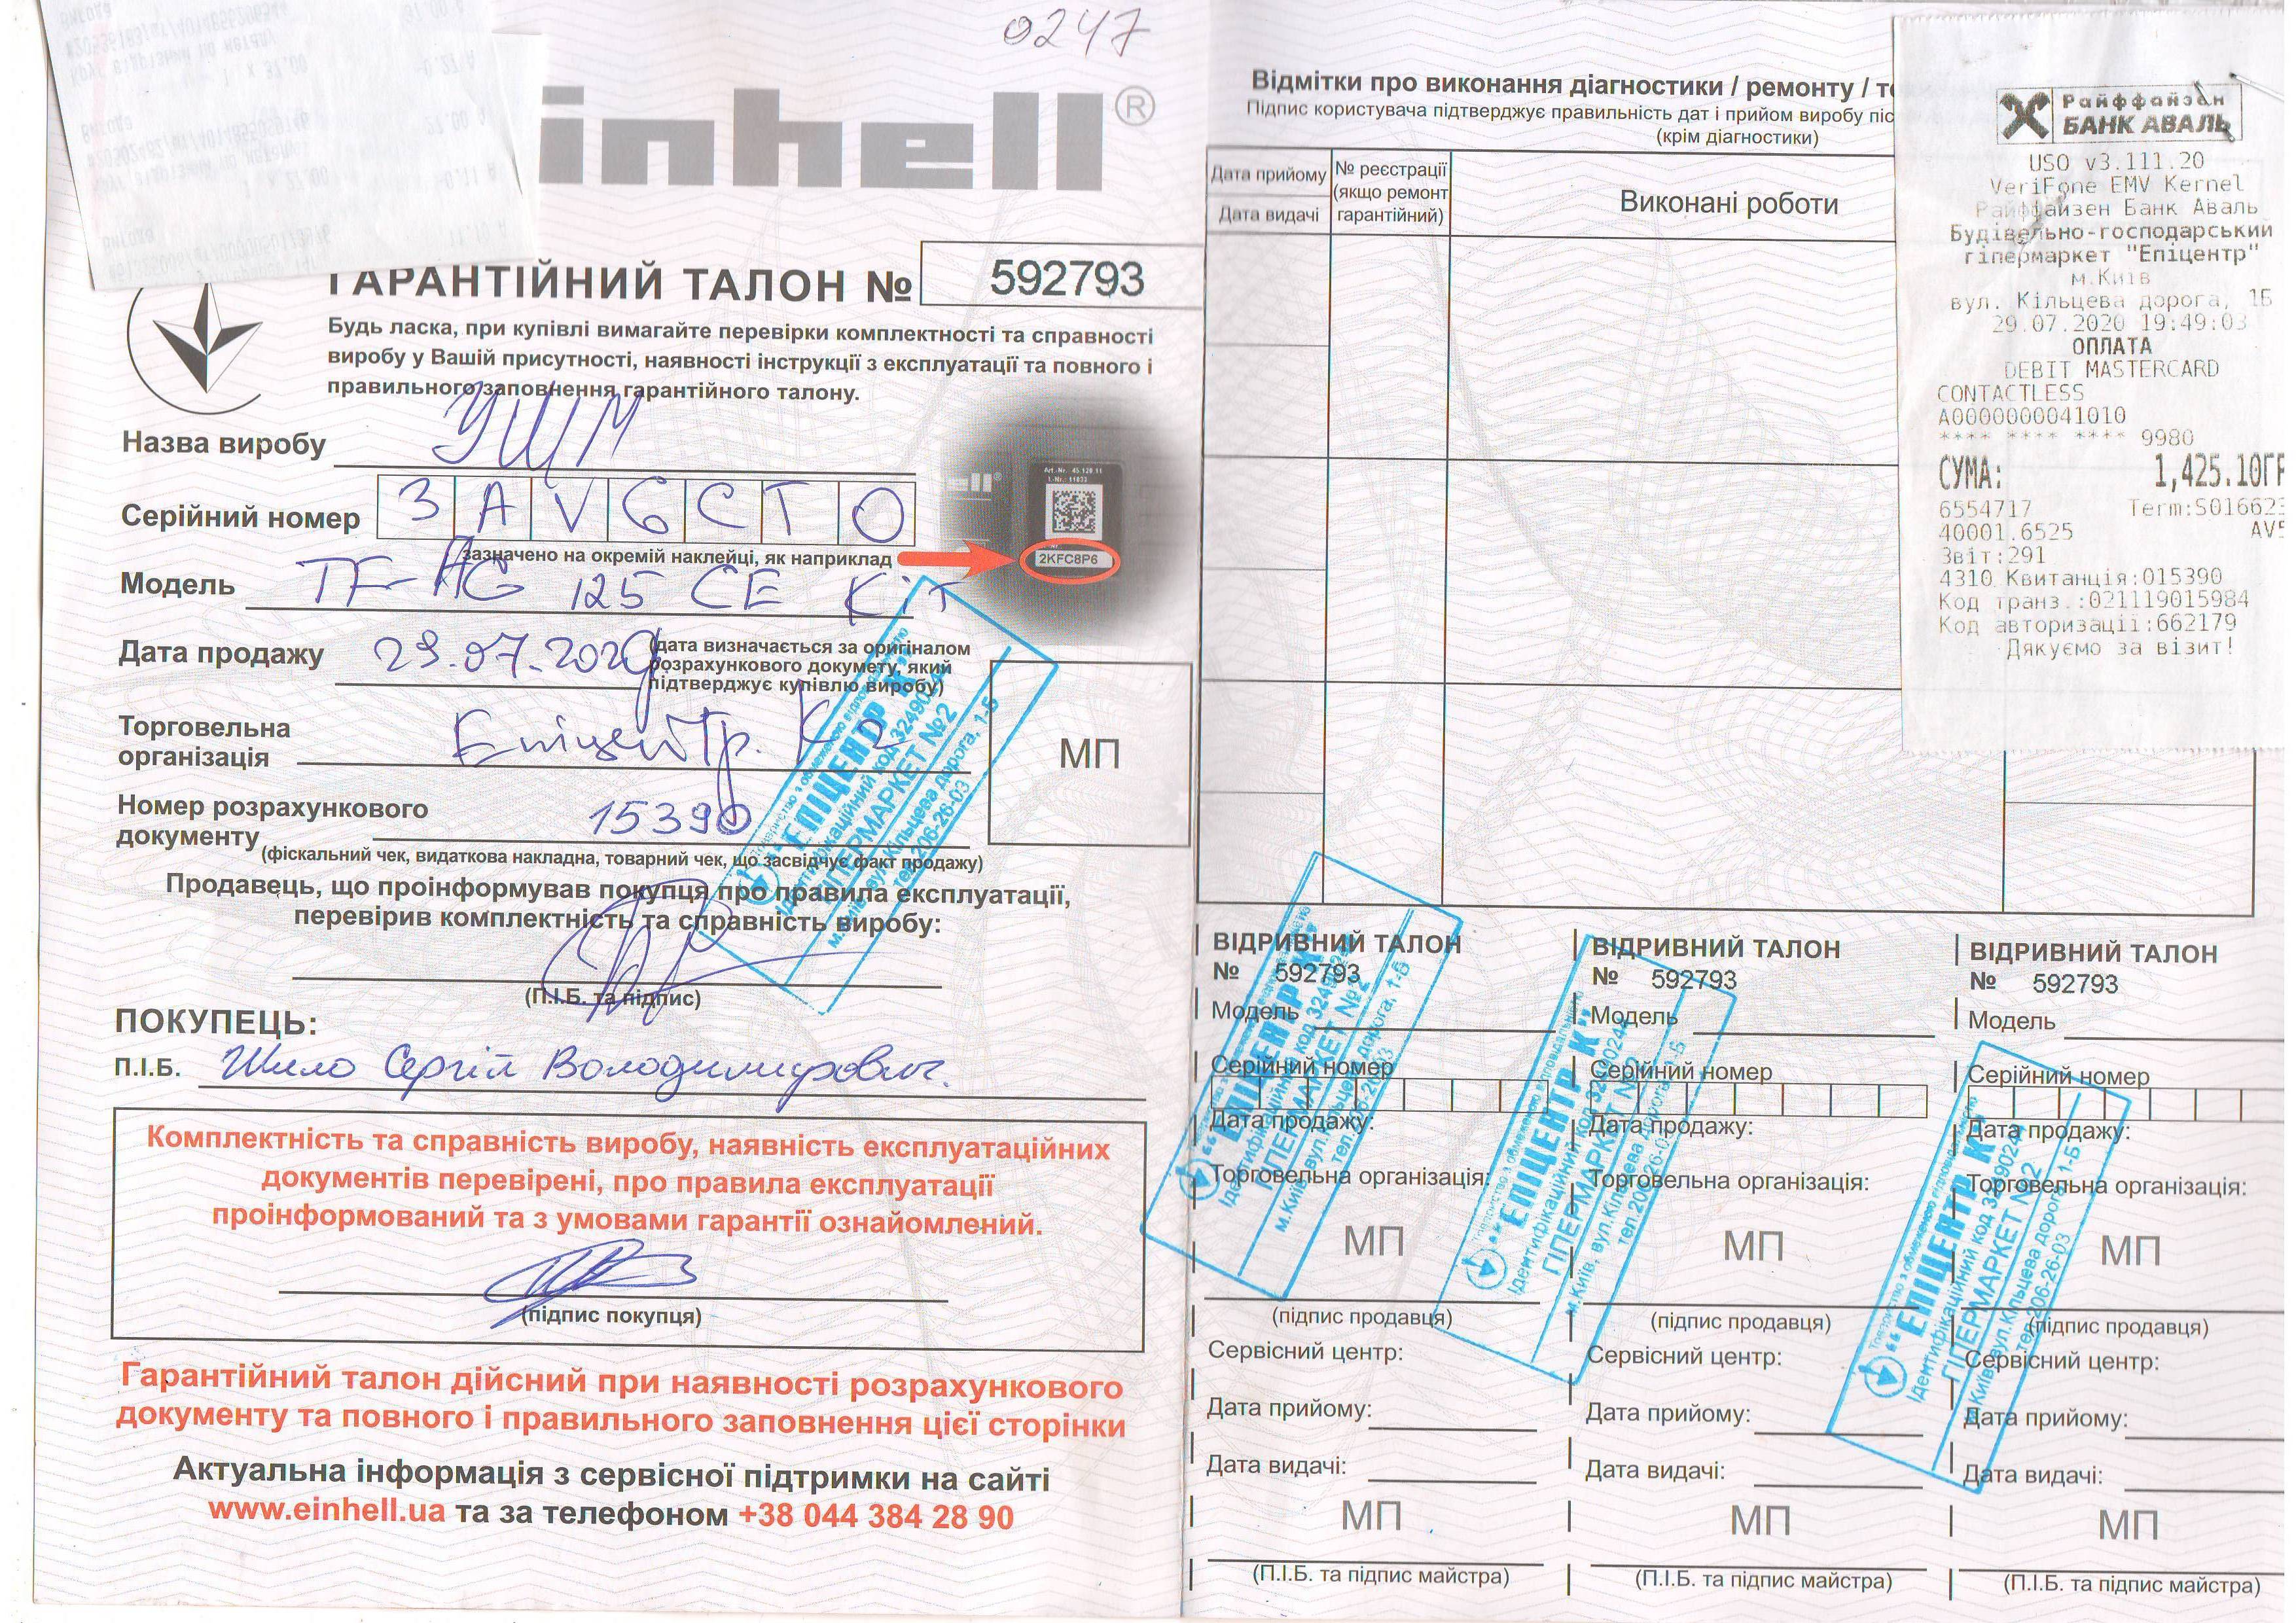 0247
einhell®
ГАРАНТІЙНИЙ ТАЛОН № 592793
Будь ласка, при купівлі вимагайте перевірки комплектності та справності
виробу у Вашій присутності, наявності інструкції з експлуатації та повного і
правильного заповнення гарантійного талону.
Назва виробу УШМ
Серійний номер 3 A V G C T O
зазначено на окремій наклейці, як наприклад
Art.-Nr. 45.128.11
I.-Nr.: 11033
2KFC8P6
Модель TF-AG 125 CE Kit
Дата продажу 29.07.2020
(дата визначається за оригіналом
розрахункового докумету, який
підтверджує купівлю виробу)
Торговельна
організація Епіцентр. К 2
МП
Номер розрахункового
документу 15390
(фіскальний чек, видаткова накладна, товарний чек, що засвідчує факт продажу)
Продавець, що проінформував покупця про правила експлуатації,
перевірив комплектність та справність виробу:
(П.І.Б. та підпис)
ПОКУПЕЦЬ:
П.І.Б. Шило Сергій Володимирович.
Комплектність та справність виробу, наявність експлуатаційних
документів перевірені, про правила експлуатації
проінформований та з умовами гарантії ознайомлений.
(підпис покупця)
Гарантійний талон дійсний при наявності розрахункового
документу та повного і правильного заповнення цієї сторінки
Актуальна інформація з сервісної підтримки на сайті
www.einhell.ua та за телефоном +38 044 384 28 90
Товариство з обмеженою відповідальністю
"ЕПІЦЕНТР К"
Ідентифікаційний код 32490244
ГІПЕРМАРКЕТ №2
м.Київ, вул.Кільцева дорога, 1-Б
тел.206-26-03
Відмітки про виконання діагностики / ремонту /
Підпис користувача підтверджує правильність дат і прийом виробу
(крім діагностики)
Дата прийому
Дата видачі
№ реєстрації
(якщо ремонт
гарантійний)
Виконані роботи
Райффайзен
БАНК АВАЛЬ
USO v3.111.20
VeriFone EMV Kernel
Райффайзен Банк Аваль
Будівельно-господарський
гіпермаркет "Епіцентр"
м.Київ
вул. Кільцева дорога, 1Б
29.07.2020 19:49:03
ОПЛАТА
DEBIT MASTERCARD
CONTACTLESS
A0000000041010
**** **** **** 9980
СУМА: 1,425.10ГР
6554717 Term:S016623
40001.6525 AV5
Звіт:291
4310 Квитанція:015390
Код транз.:021119015984
Код авторизації:662179
Дякуємо за візит!
ВІДРИВНИЙ ТАЛОН
№ 592793
Модель
Серійний номер
Дата продажу:
Торговельна організація:
МП
(підпис продавця)
Сервісний центр:
Дата прийому:
Дата видачі:
МП
(П.І.Б. та підпис майстра)
Товариство з обмеженою відповідальністю
"ЕПІЦЕНТР К"
Ідентифікаційний код 32490244
ГІПЕРМАРКЕТ №2
м.Київ, вул.Кільцева дорога, 1-Б
тел.206-26-03
ВІДРИВНИЙ ТАЛОН
№ 592793
Модель
Серійний номер
Дата продажу:
Торговельна організація:
МП
(підпис продавця)
Сервісний центр:
Дата прийому:
Дата видачі:
МП
(П.І.Б. та підпис майстра)
Товариство з обмеженою відповідальністю
"ЕПІЦЕНТР К"
Ідентифікаційний код 32490244
ГІПЕРМАРКЕТ №2
м.Київ, вул.Кільцева дорога, 1-Б
тел.206-26-03
ВІДРИВНИЙ ТАЛОН
№ 592793
Модель
Серійний номер
Дата продажу:
Торговельна організація:
МП
(підпис продавця)
Сервісний центр:
Дата прийому:
Дата видачі:
МП
(П.І.Б. та підпис майстра)
Товариство з обмеженою відповідальністю
"ЕПІЦЕНТР К"
Ідентифікаційний код 32490244
ГІПЕРМАРКЕТ №2
м.Київ, вул.Кільцева дорога, 1-Б
тел.206-26-03